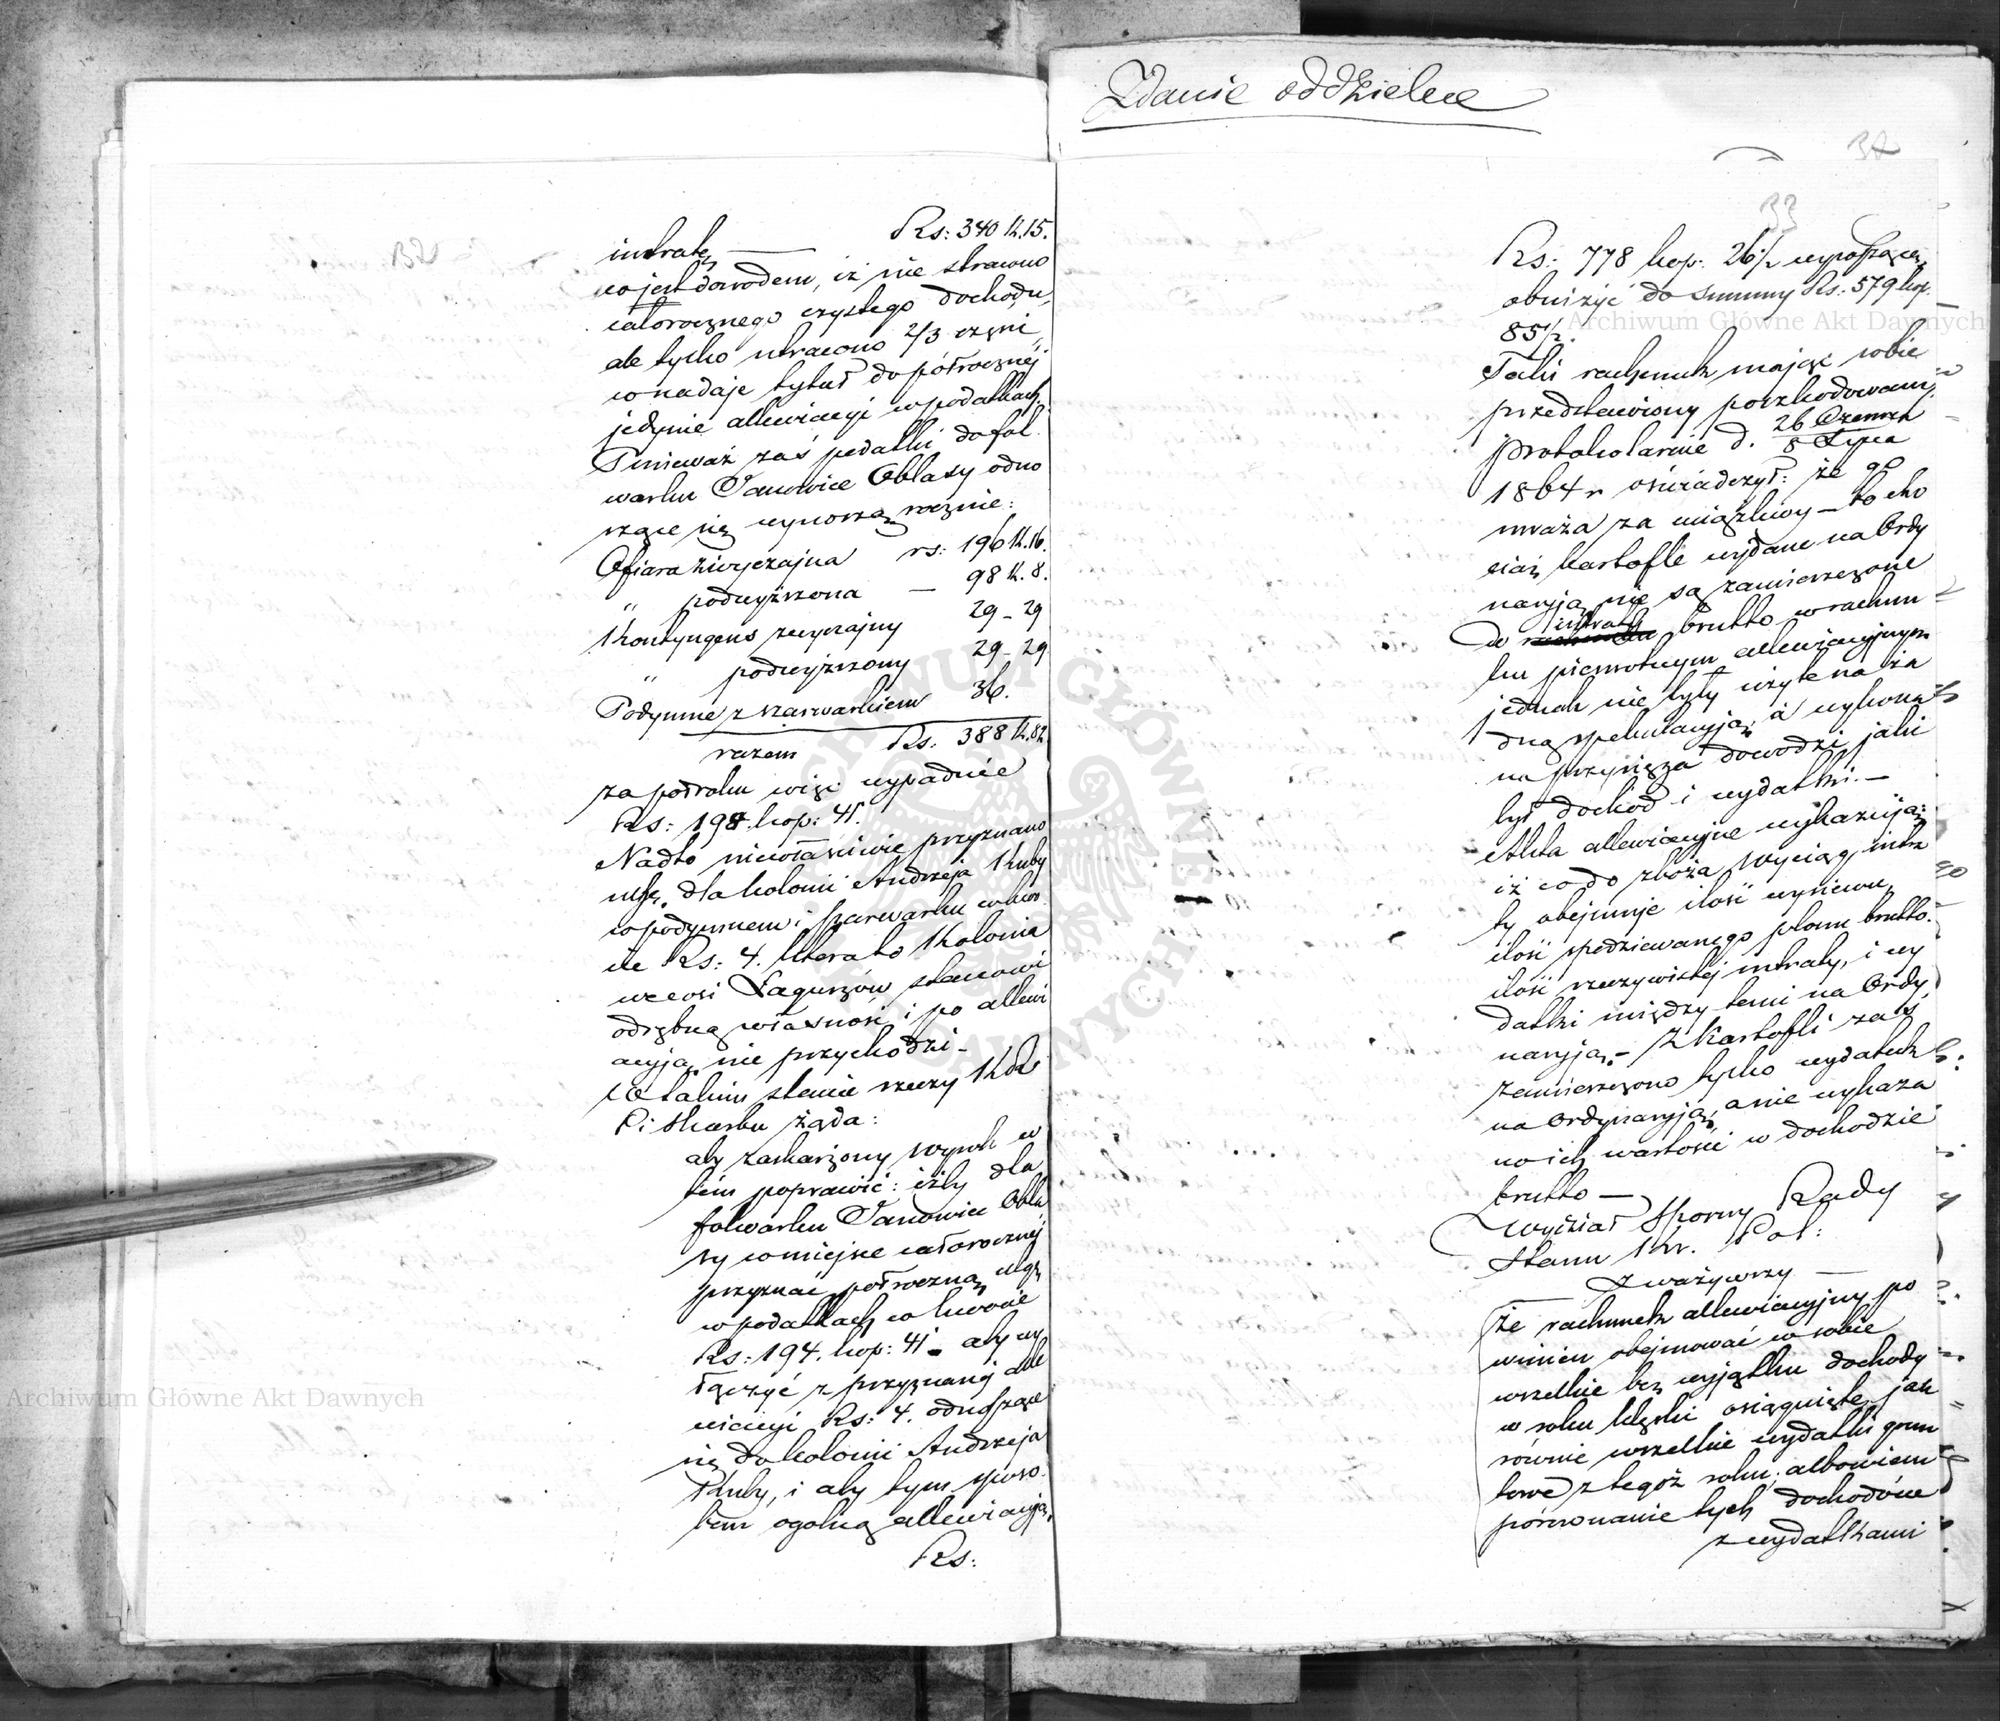 intratę — Rs: 340 k. 15.
co jest dowodem, iż nie stracono
całorocznego czystego dochodu,
ale tylko utracono 2/3 części,
co nadaje tytuł do półrocznéj
jedynie allewiacyi w podatkach.
Ponieważ zaś podatki do fol
warku Janowice Oblasy odno
szące się wynoszą rocznie:
Ofiara zwyczajna rs: 196 k. 16.
" podwyższona — 98 k. 8.
Kontyngens zwyczajny 29 - 29
" podwyższony 29 - 29
Podymne z szarwarkiem 36.
razem Rs: 388 k. 82
za półroku więc wypadnie
Rs: 194. kop: 41.
Nadto niewłaściwie przyznano
ulgę dla kolonii Andrzeja Kuby
w podymnem i szarwarku w kwo
cie Rs: 4. która to Kolonia
we wsi Łaguszów stanowi
odrębną własność i po allewi
acyją nie przychodzi -
W takim stanie rzeczy
i Skarbu żąda:
aby zaskarżony wyrok w
tém poprawić: iżby dla
folwarku Janowice Obla
sy w miejsce całorocznéj
przyznać półroczną ulgę
w podatkach w kwocie
Rs: 194. kop: 41 - aby wy
łączyć z przyznanéj alle
wiacyi Rs: 4. odnoszące
się do kolonii Andrzeja
Kuby, i aby tym sposo
bem ogólną allewiacyją,
Rs:
Zdanie oddzielne
32
33
Rs: 778 kop: 26 1/2 wynoszącą,
obniżyć do summy Rs: 579 kop.
85 1/2.
Taki rachunek mając sobie
przedstawiony poszkodowany,
protokolarnie d. 26 Czerwca
8 Lipca
1864 r oświadczył: że go
uważa za uciążliwy — bo cho
ciaż kartofle wydane na Ordy
naryją nie są zamieszczone
intraty
w brutto w rachun
ku pierwotnym allewiacyjnym
jednak nie były użyte na ża
dną spekulacyją, a wykona
na przysięga dowodzi jaki
był dochód i wydatki. —
Akta allewiacyjne wykazują:
iż co do zboża wyciąg intra
ty obejmuje ilość wysiewu,
ilość spodziewanego plonu brutto.
ilość rzeczywistéj intraty, i wy
datki między temi na Ordy
naryją. — Z Kartofli zaś
zamieszczono tylko wydatek
na Ordynaryją, a nie wykaza
no ich wartości w dochodzie
brutto —
Wydział Sporny Rady
Stanu Kr. Pol:
Zważywszy —
że rachunek allewiacyjny po
winien obejmować w sobie
wszelkie bez wyjątku dochody
w roku klęski osiągnięte, jak
równie wszelkie wydatki grun
towe z tegoż roku; albowiem
porównanie tych dochodów
z wydatkami
Archiwum Główne Akt Dawnych
Archiwum Główne Akt Dawnych